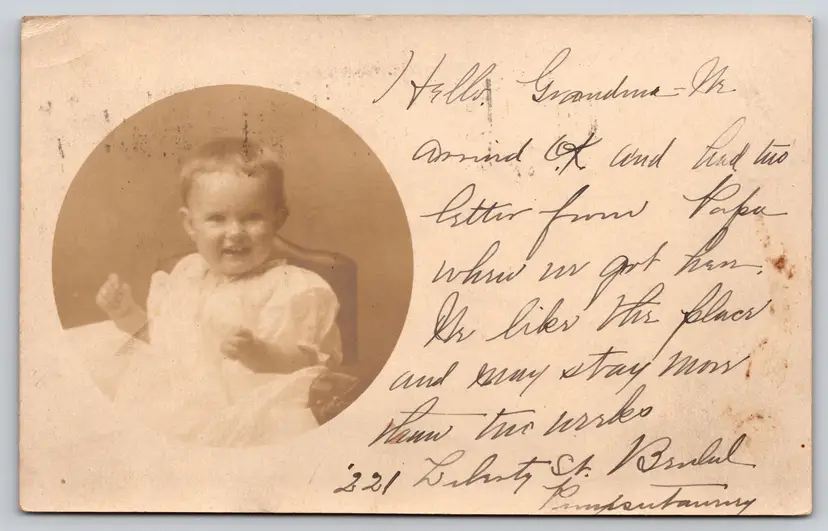 Hello Grandma - We
arrived O.K. and had two
letter from Papa
when we got here.
We like the place
and may stay more
than two weeks
221 Liberty St.
Punxsutawney